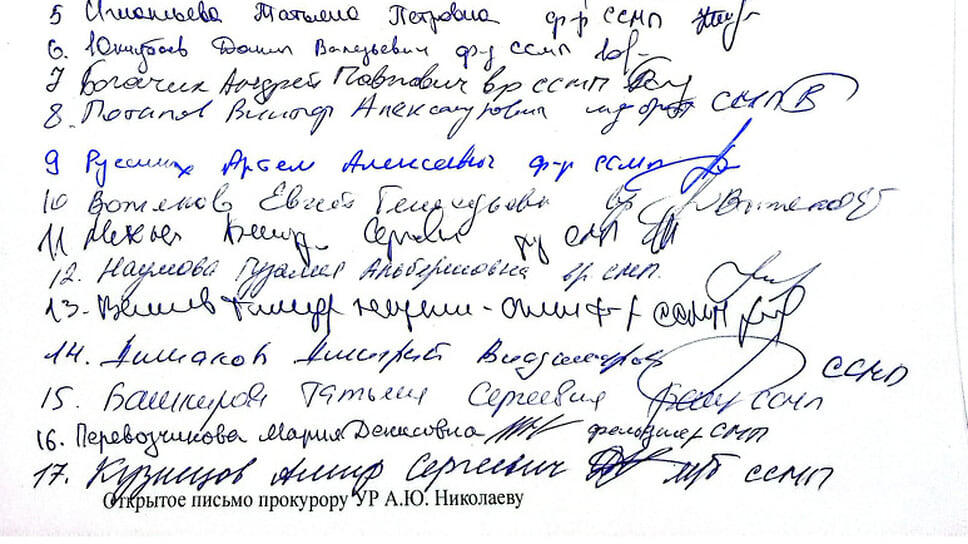 5 Игнатьева Татьяна Петровна ф-р ССМП
6. Данил Валерьевич ф-р ССМП
7 Богачик Андрей Павлович вр ССМП
8. Потапов Виктор Александрович мед брат ССМП
9 Русских Артем Алексеевич ф-р ССМП
10 Евгений Геннадьевич вр
11 Сергеевич СМП
12. Наумова Гузалия Альбертовна вр. СМП.
13. Тимур ф-р ССМП
14. Дмитрий Владимирович ССМП
15. Татьяна Сергеевна ССМП
16. Перевозчикова Мария Денисовна фельдшер СМП
17. Кузнецов Амир Сергеевич ССМП
Открытое письмо прокурору УР А.Ю. Николаеву